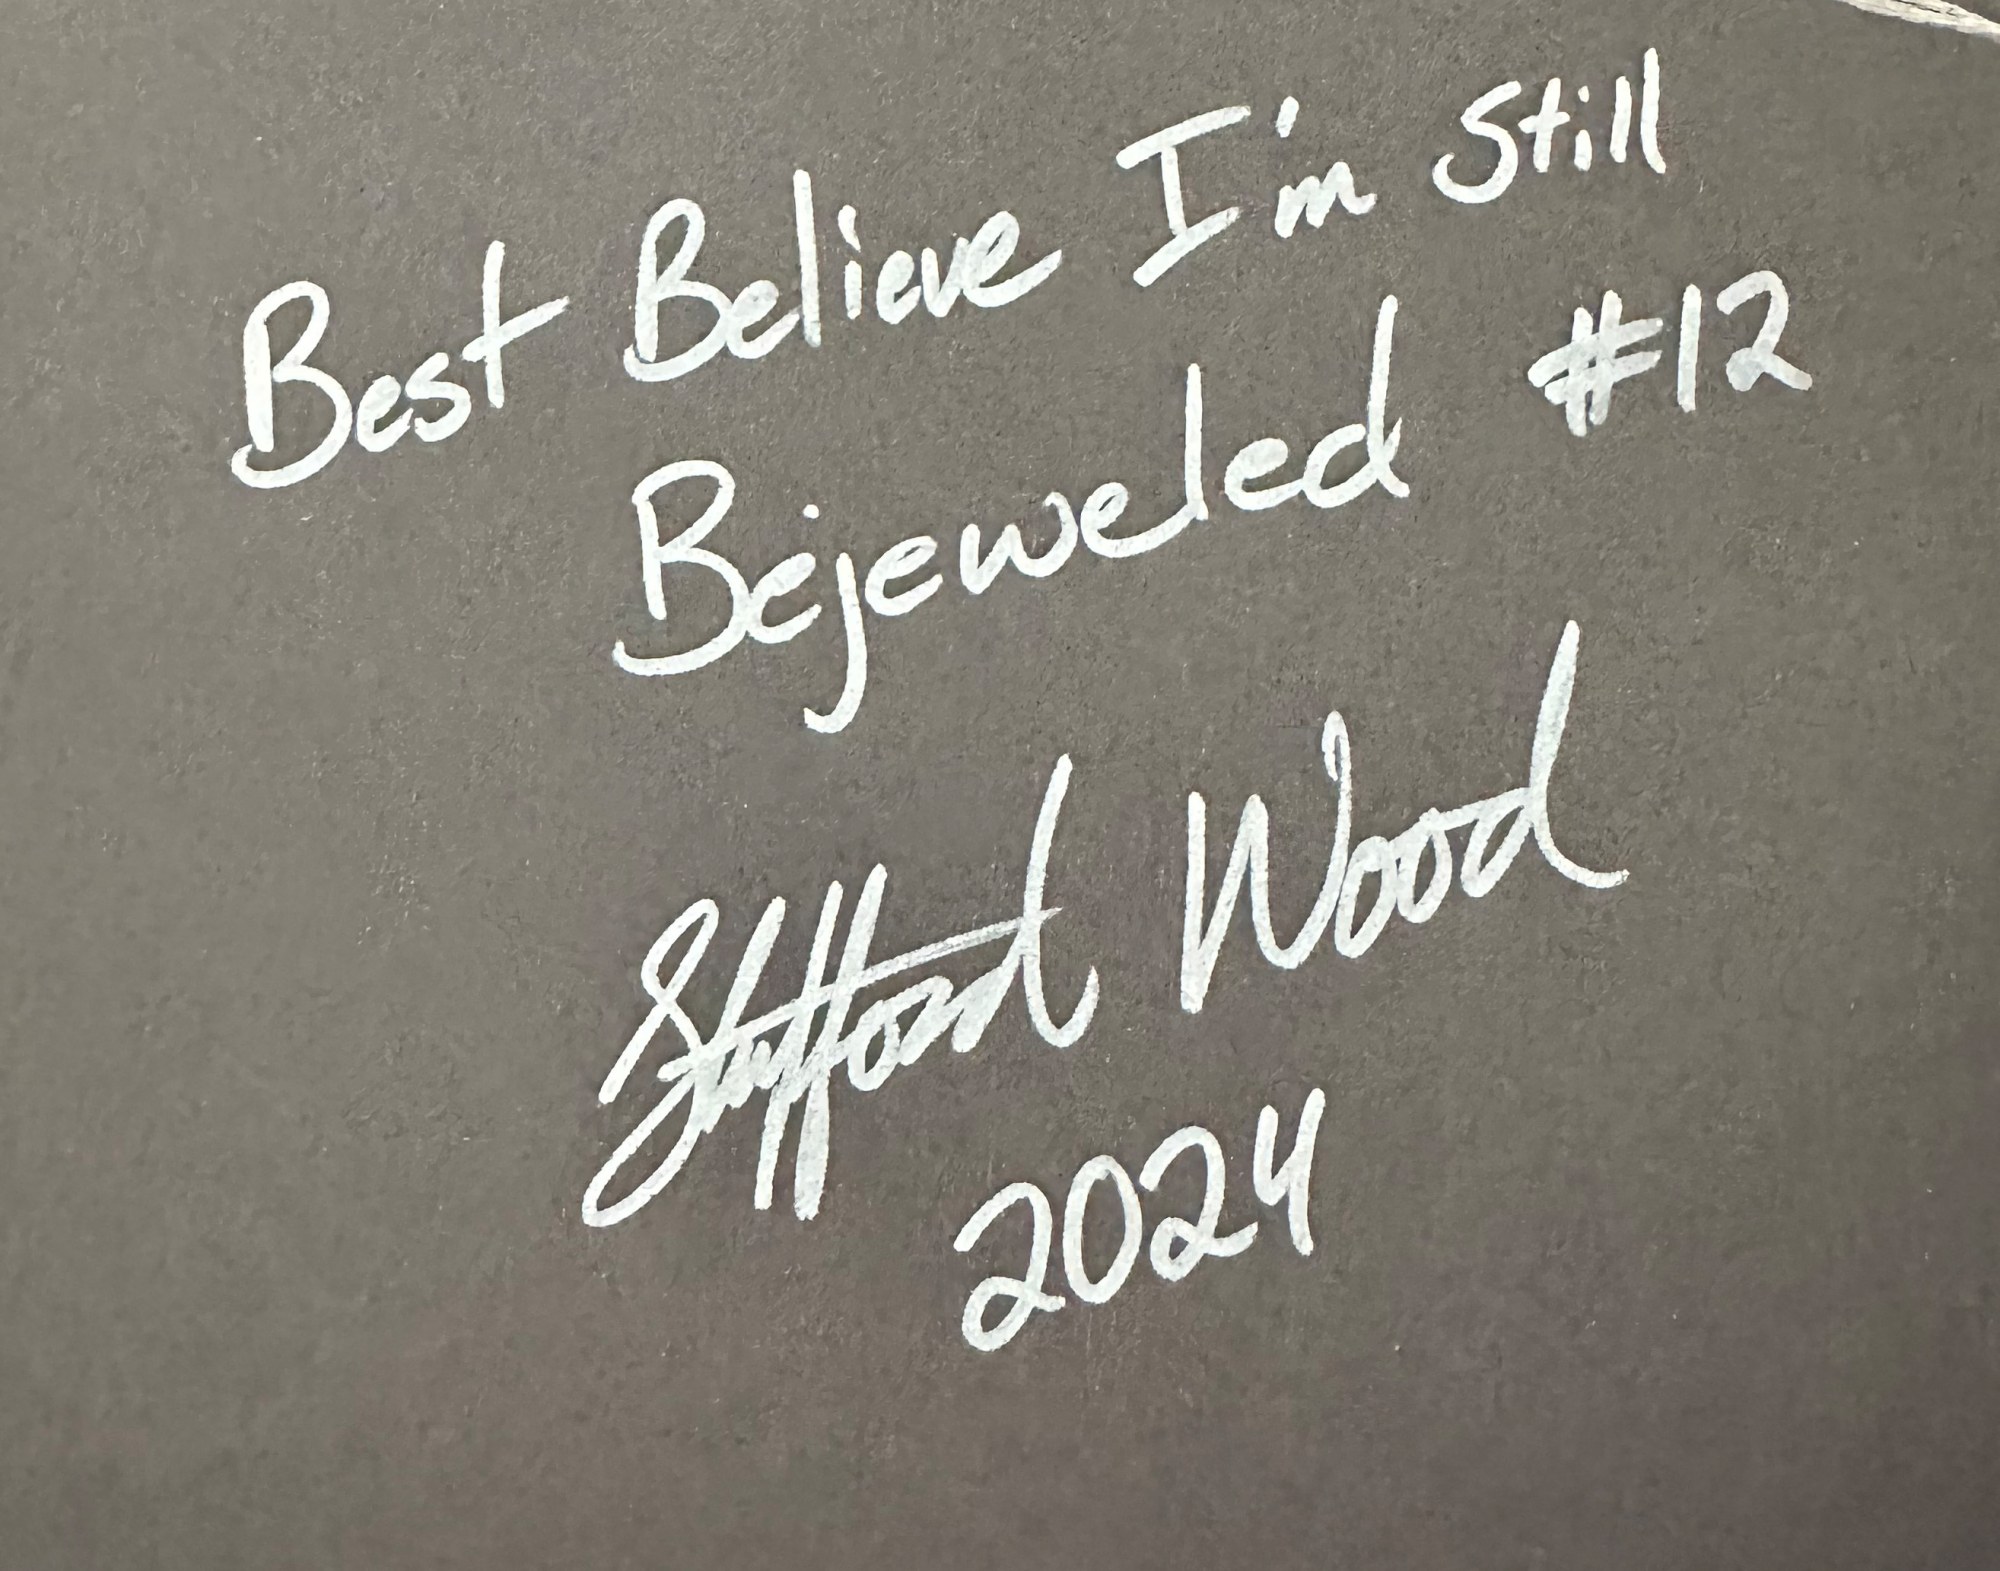 Best Believe I'm Still
Bejeweled #12
Stafford Wood
2024